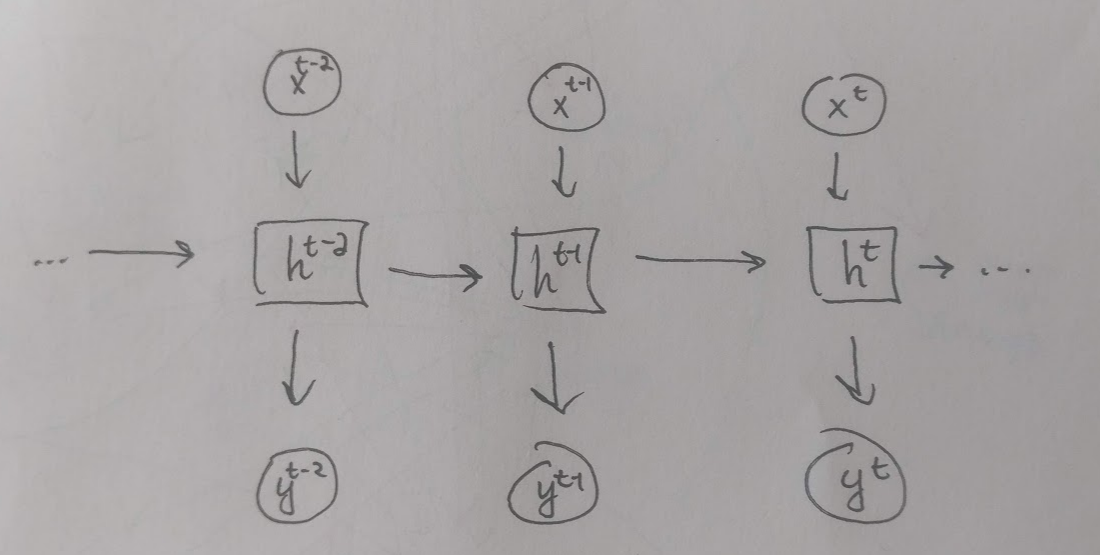 x^{t-2} x^{t-1} x^t
... h^{t-2} h^{t-1} h^t ...
y^{t-2} y^{t-1} y^t